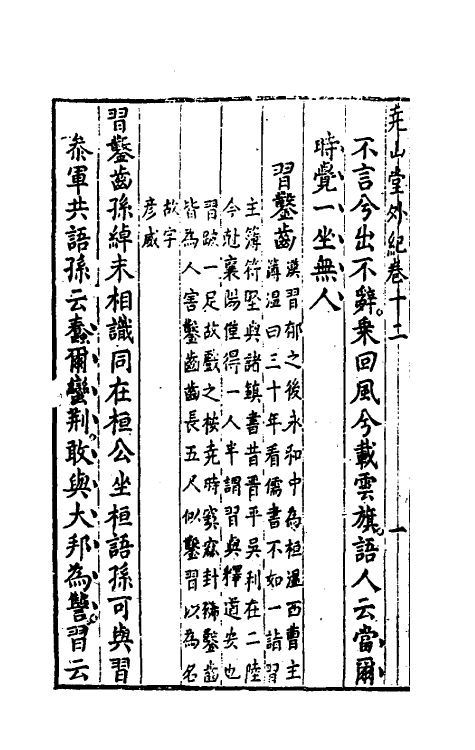 堯山堂外紀卷十二　一
不言兮出不辭乘回風兮載雲旗語人云當爾
時覺一坐無人
習鑿齒
漢習郁之後永和中為桓溫西曹主
簿溫曰三十年看儒書不如一詣習
主簿苻堅與諸鎮書昔晉平吳利在二陸
今赴襄陽僅得一人半謂習與釋道安也
習跛一足故戲之按堯時窫窳封豨鑿齒
皆為人害鑿齒齒長五尺似鑿習以為名
故字
彦威
習鑿齒孫綽未相識同在桓公坐桓語孫可與習
叅軍共語孫云蠢爾蠻荆敢與大邦為讐習云